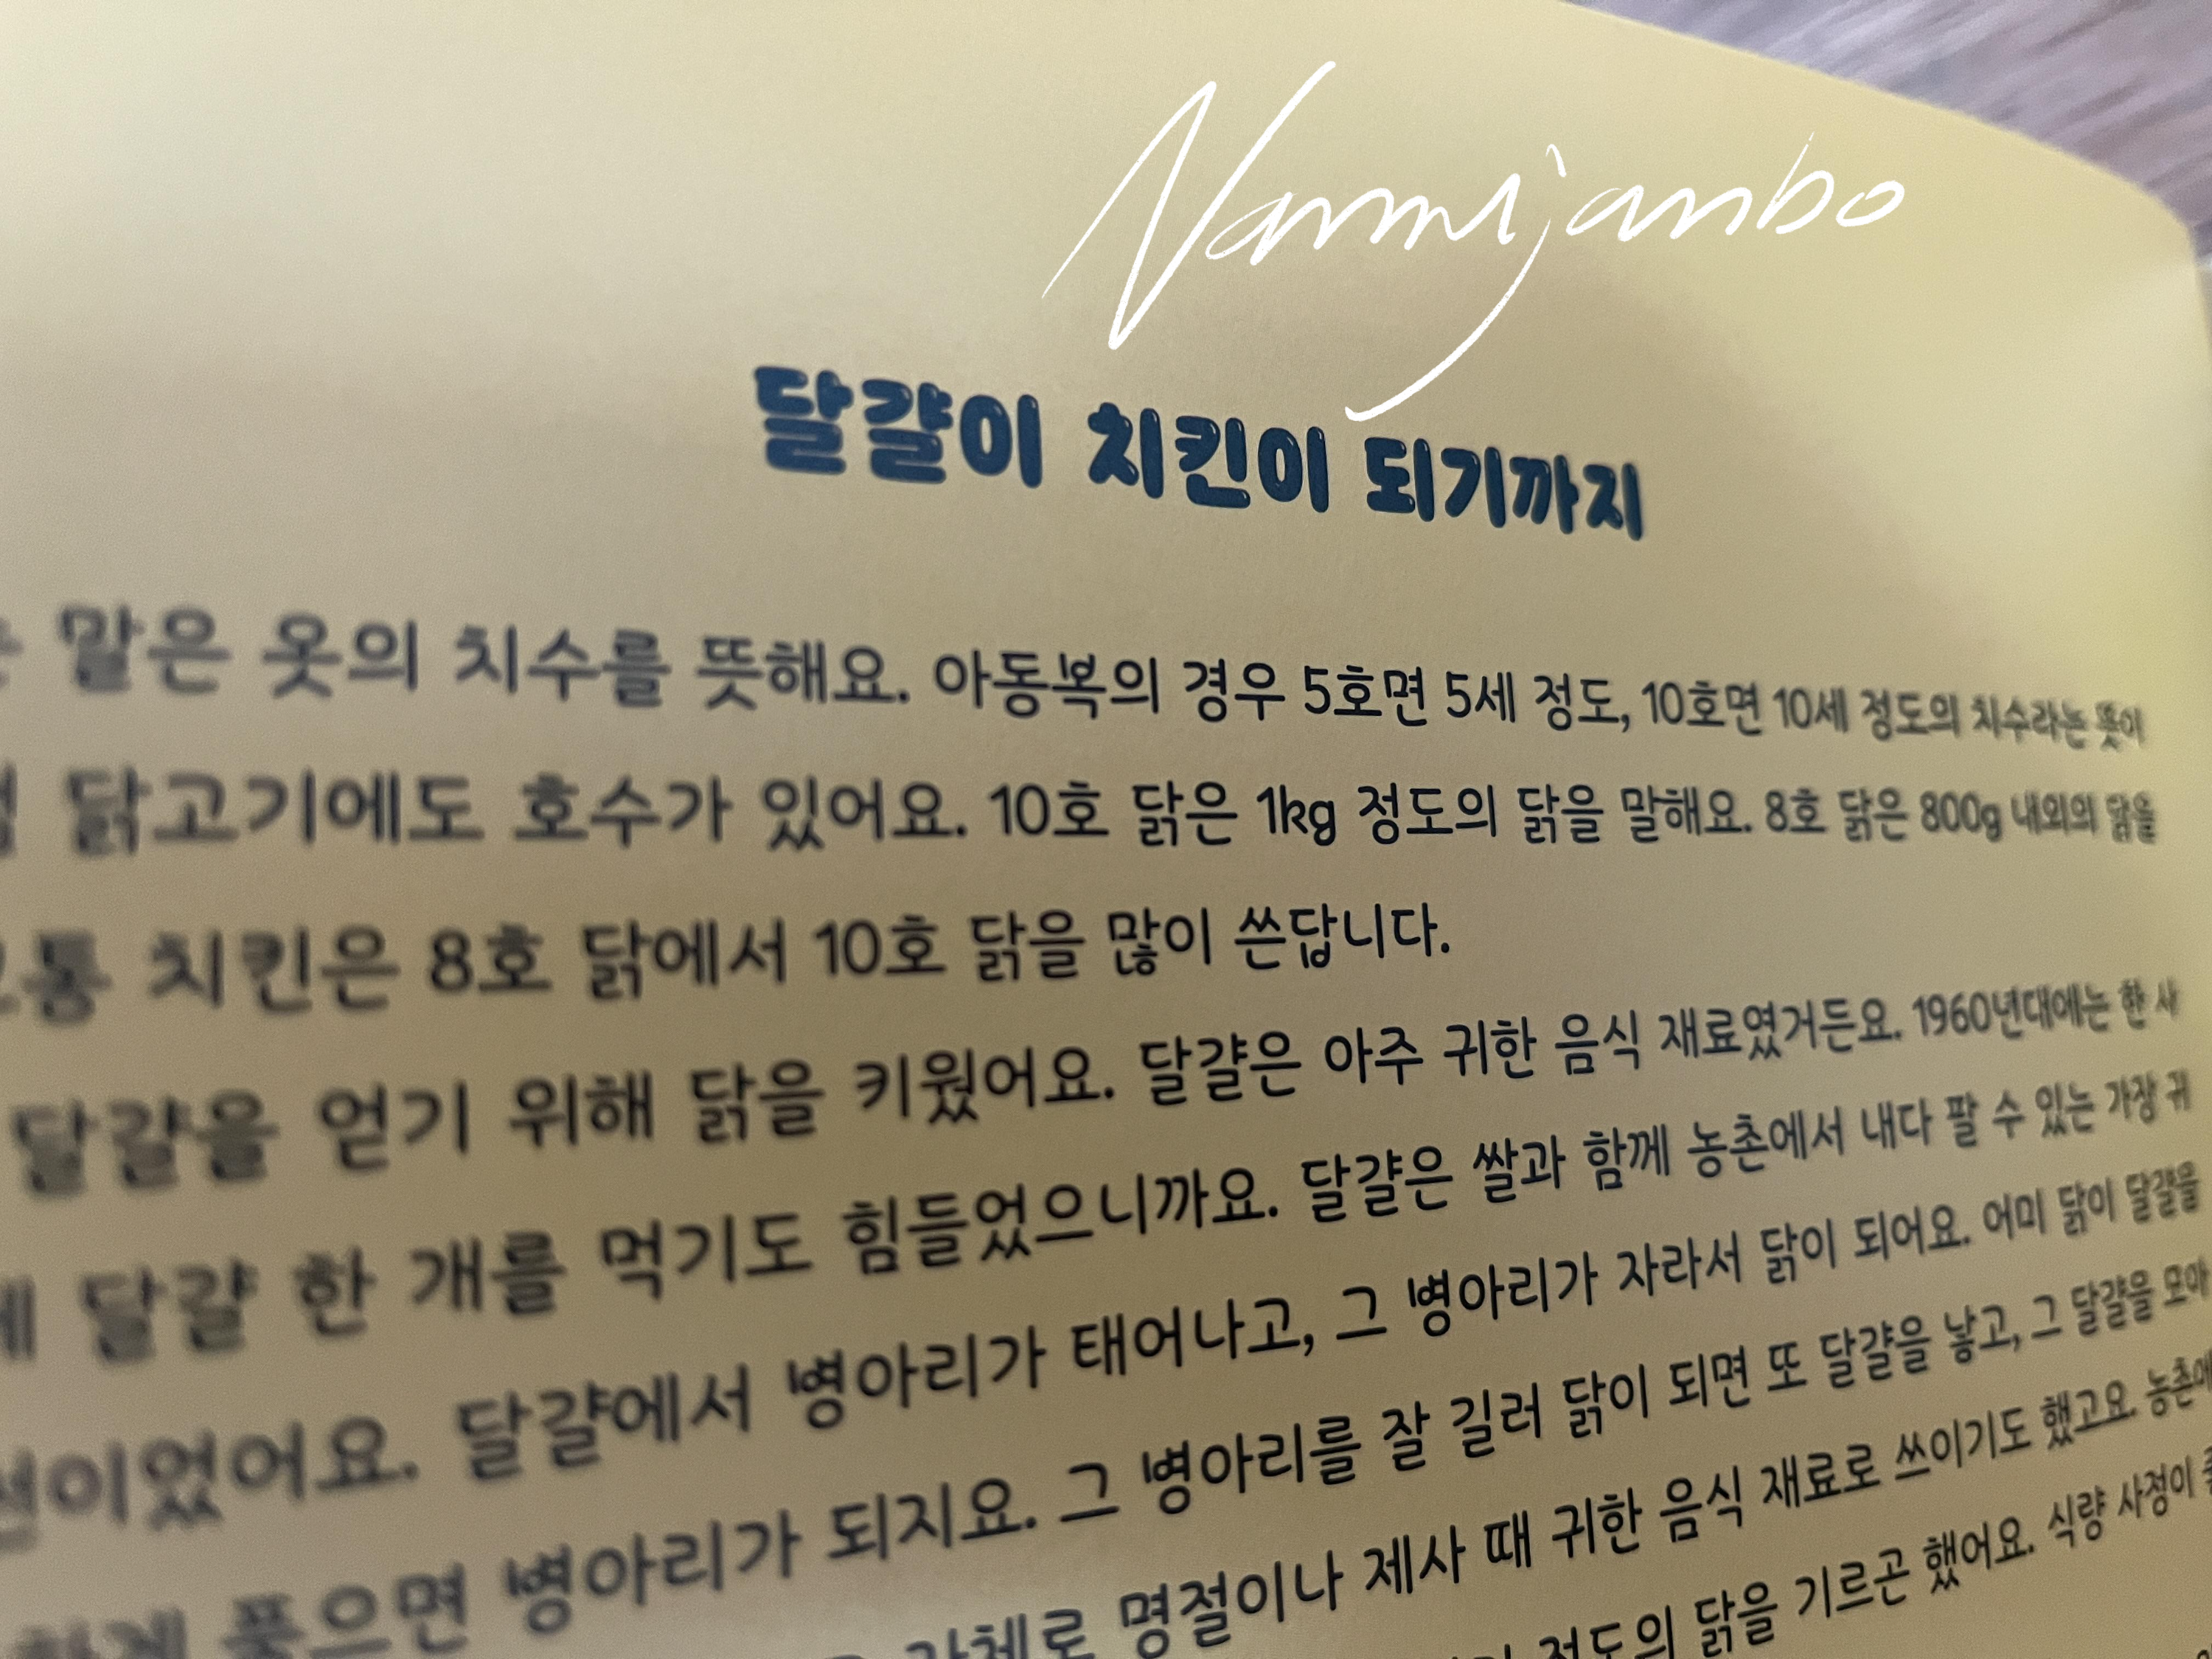 Nammijanbo
달걀이 치킨이 되기까지
말은 옷의 치수를 뜻해요. 아동복의 경우 5호면 5세 정도, 10호면 10세 정도의 치수라는 뜻이
닭고기에도 호수가 있어요. 10호 닭은 1kg 정도의 닭을 말해요. 8호 닭은 800g 내외의 닭을
치킨은 8호 닭에서 10호 닭을 많이 쓴답니다.
달걀을 얻기 위해 닭을 키웠어요. 달걀은 아주 귀한 음식 재료였거든요. 1960년대에는 한 사
달걀 한 개를 먹기도 힘들었으니까요. 달걀은 쌀과 함께 농촌에서 내다 팔 수 있는 가장 귀
이었어요. 달걀에서 병아리가 태어나고, 그 병아리가 자라서 닭이 되어요. 어미 닭이 달걀을
품으면 병아리가 되지요. 그 병아리를 잘 길러 닭이 되면 또 달걀을 낳고, 그 달걀을 모아
명절이나 제사 때 귀한 음식 재료로 쓰이기도 했고요. 농촌에
정도의 닭을 기르곤 했어요. 식량 사정이